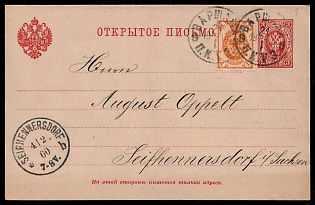 ОТКРЫТОЕ ПИСЬМО.
ВАРШ
Herrn
August Oppelt
Seifhennersdorf i/Sachsen
SEIFHENNERSDORF
4/12
00
7-8V.
На этой стороне пишется только адресъ.